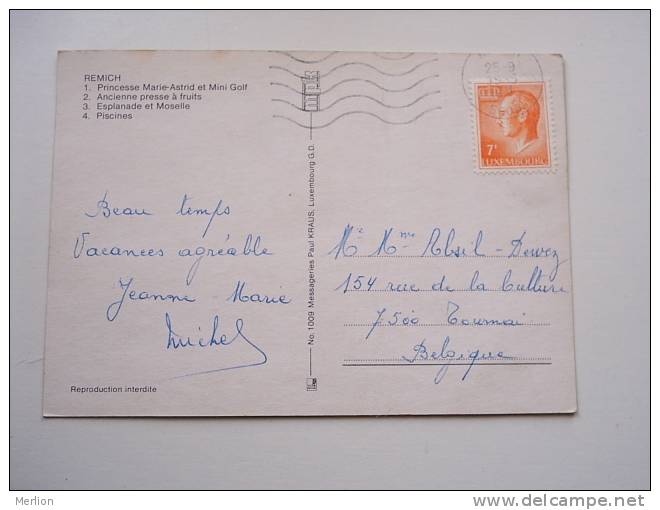 REMICH
1. Princesse Marie-Astrid et Mini Golf
2. Ancienne presse à fruits
3. Esplanade et Moselle
4. Piscines
Beau temps
Vacances agréable
Jeanne-Marie
Michel
Reproduction interdite
No. 1009 Messageries Paul KRAUS, Luxembourg G.D.
25-9
7F
LUXEMBOURG
Mr Mme Absil-Dewez
154 rue de la Culture
7500 Tournai
Belgique
Merlion
delcampe.net